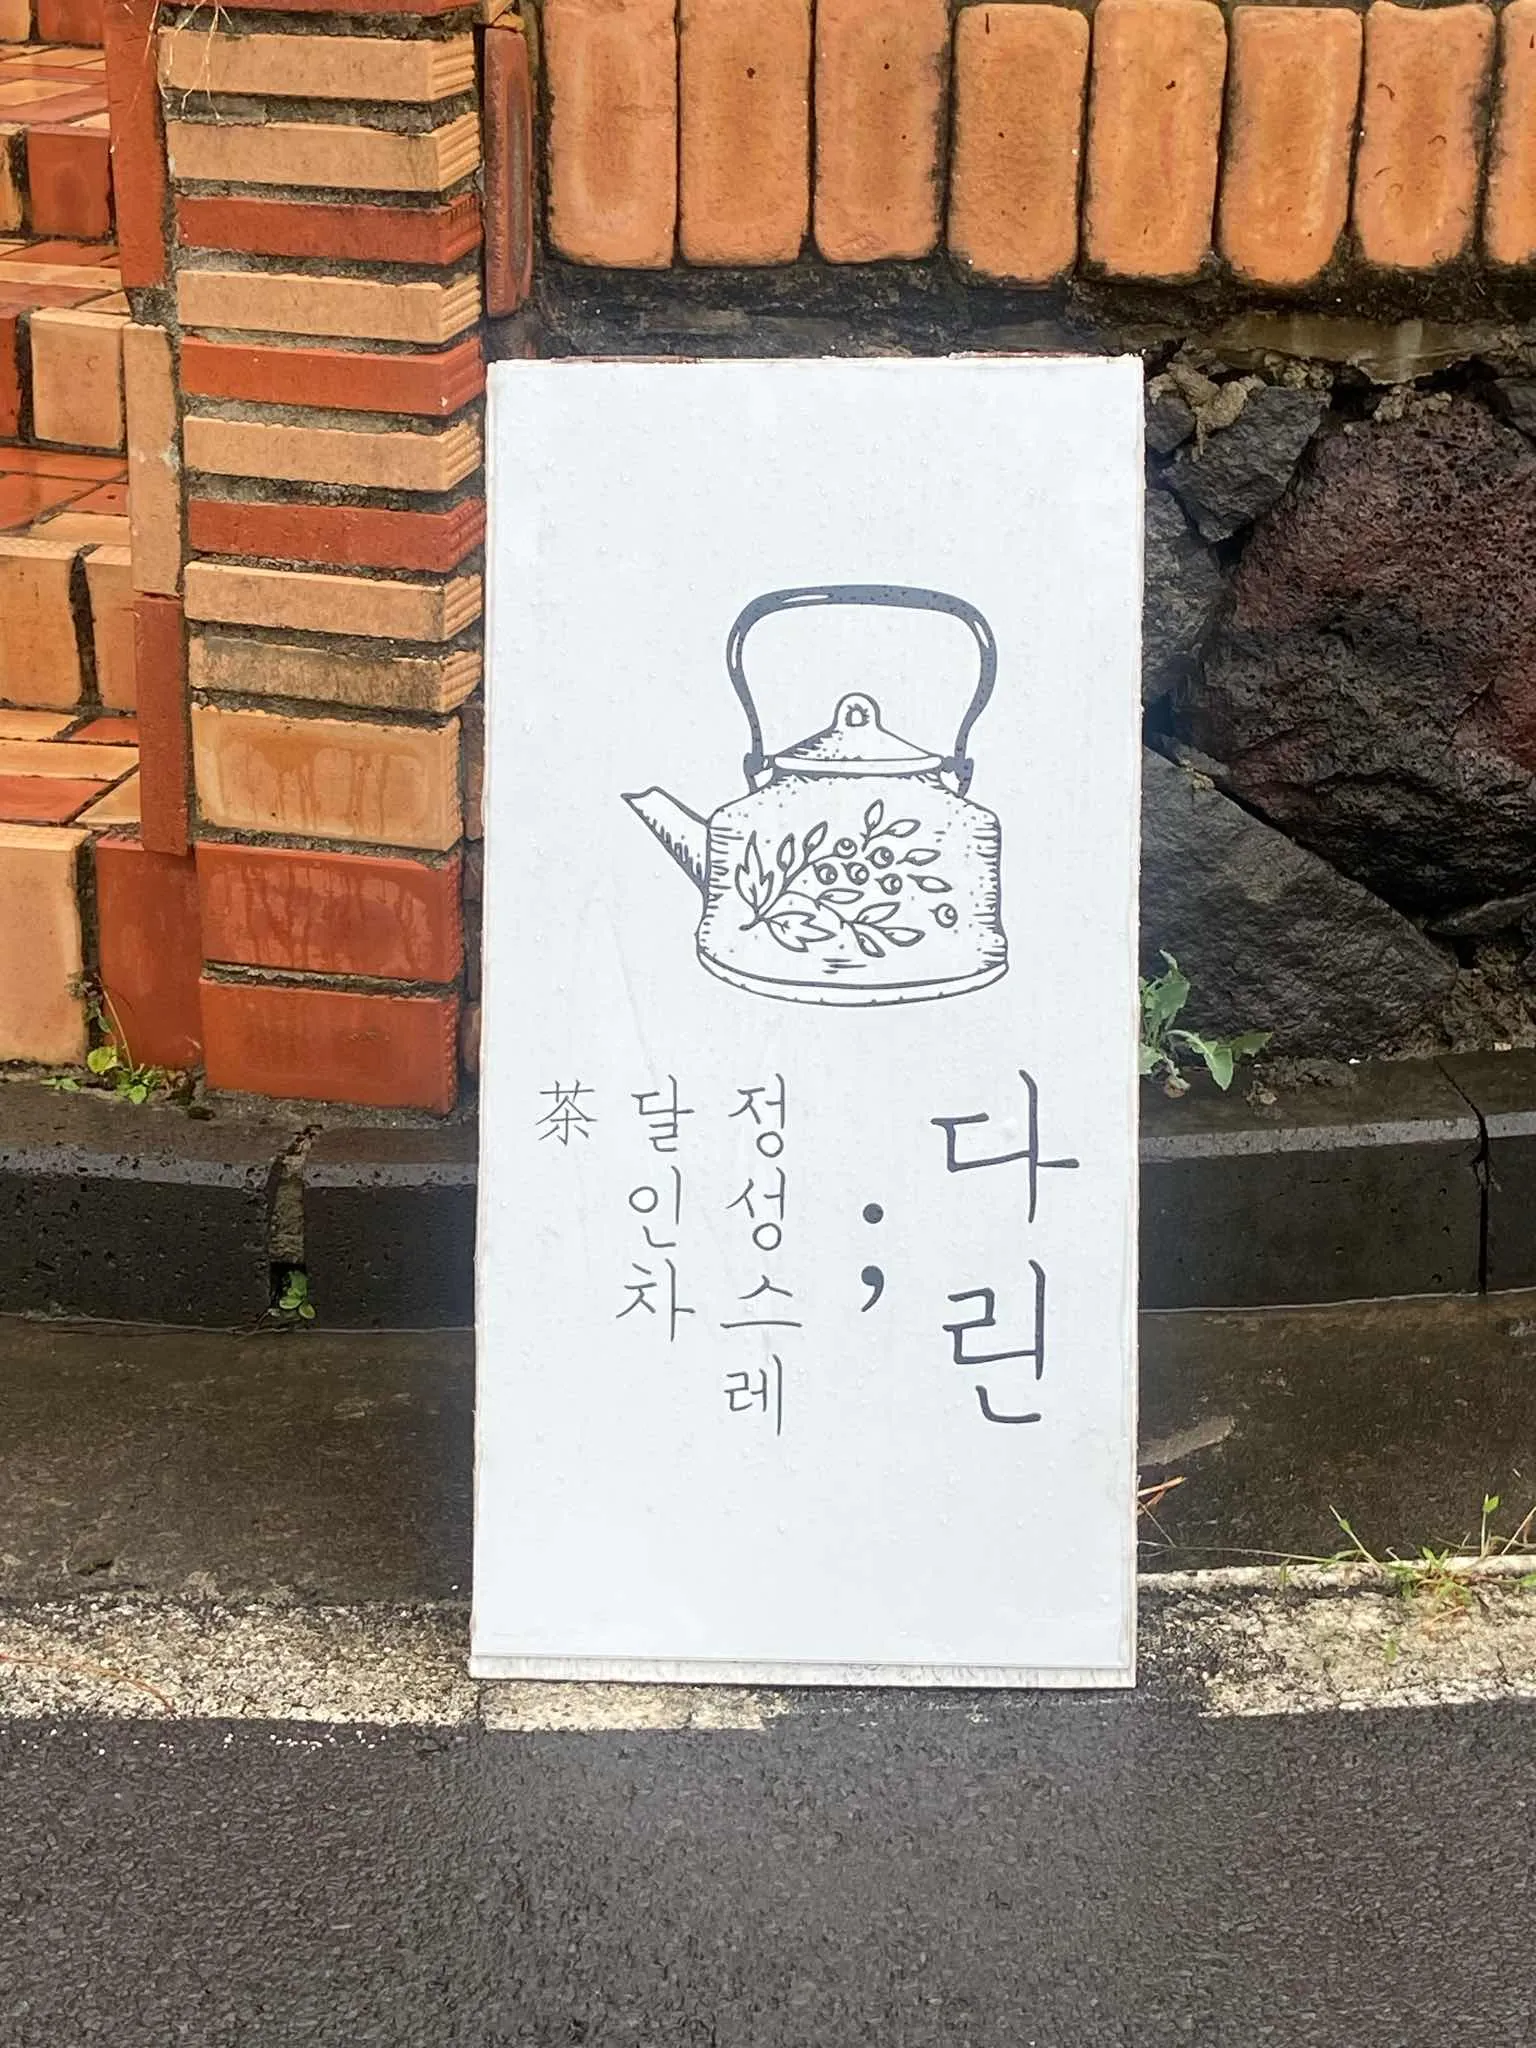 다린
;
정성스레
달인차
茶